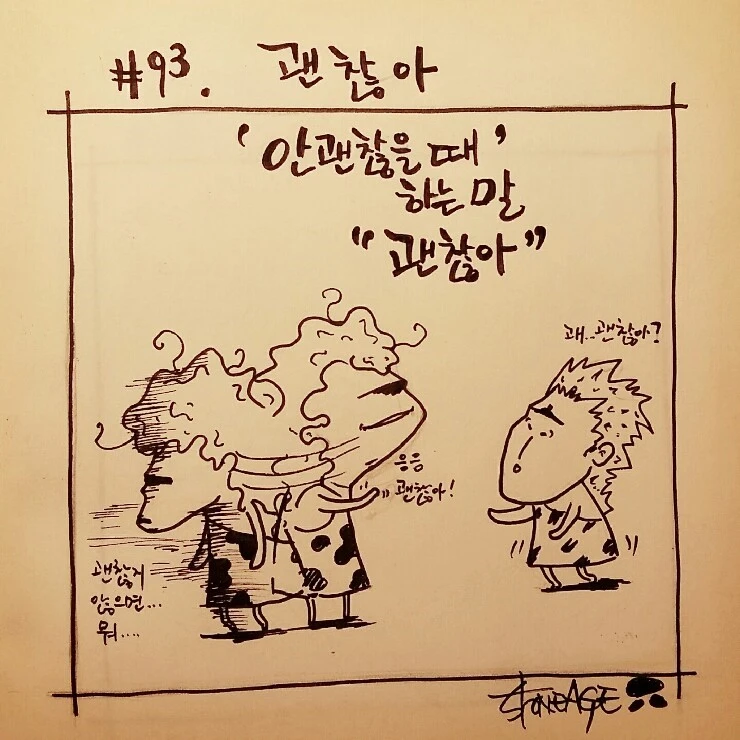 #93. 괜찮아
'안괜찮을 때'
하는 말
"괜찮아"
괘..괜찮아?
응응
괜찮아!
괜찮지
않으면...
뭐....
STONEAGE